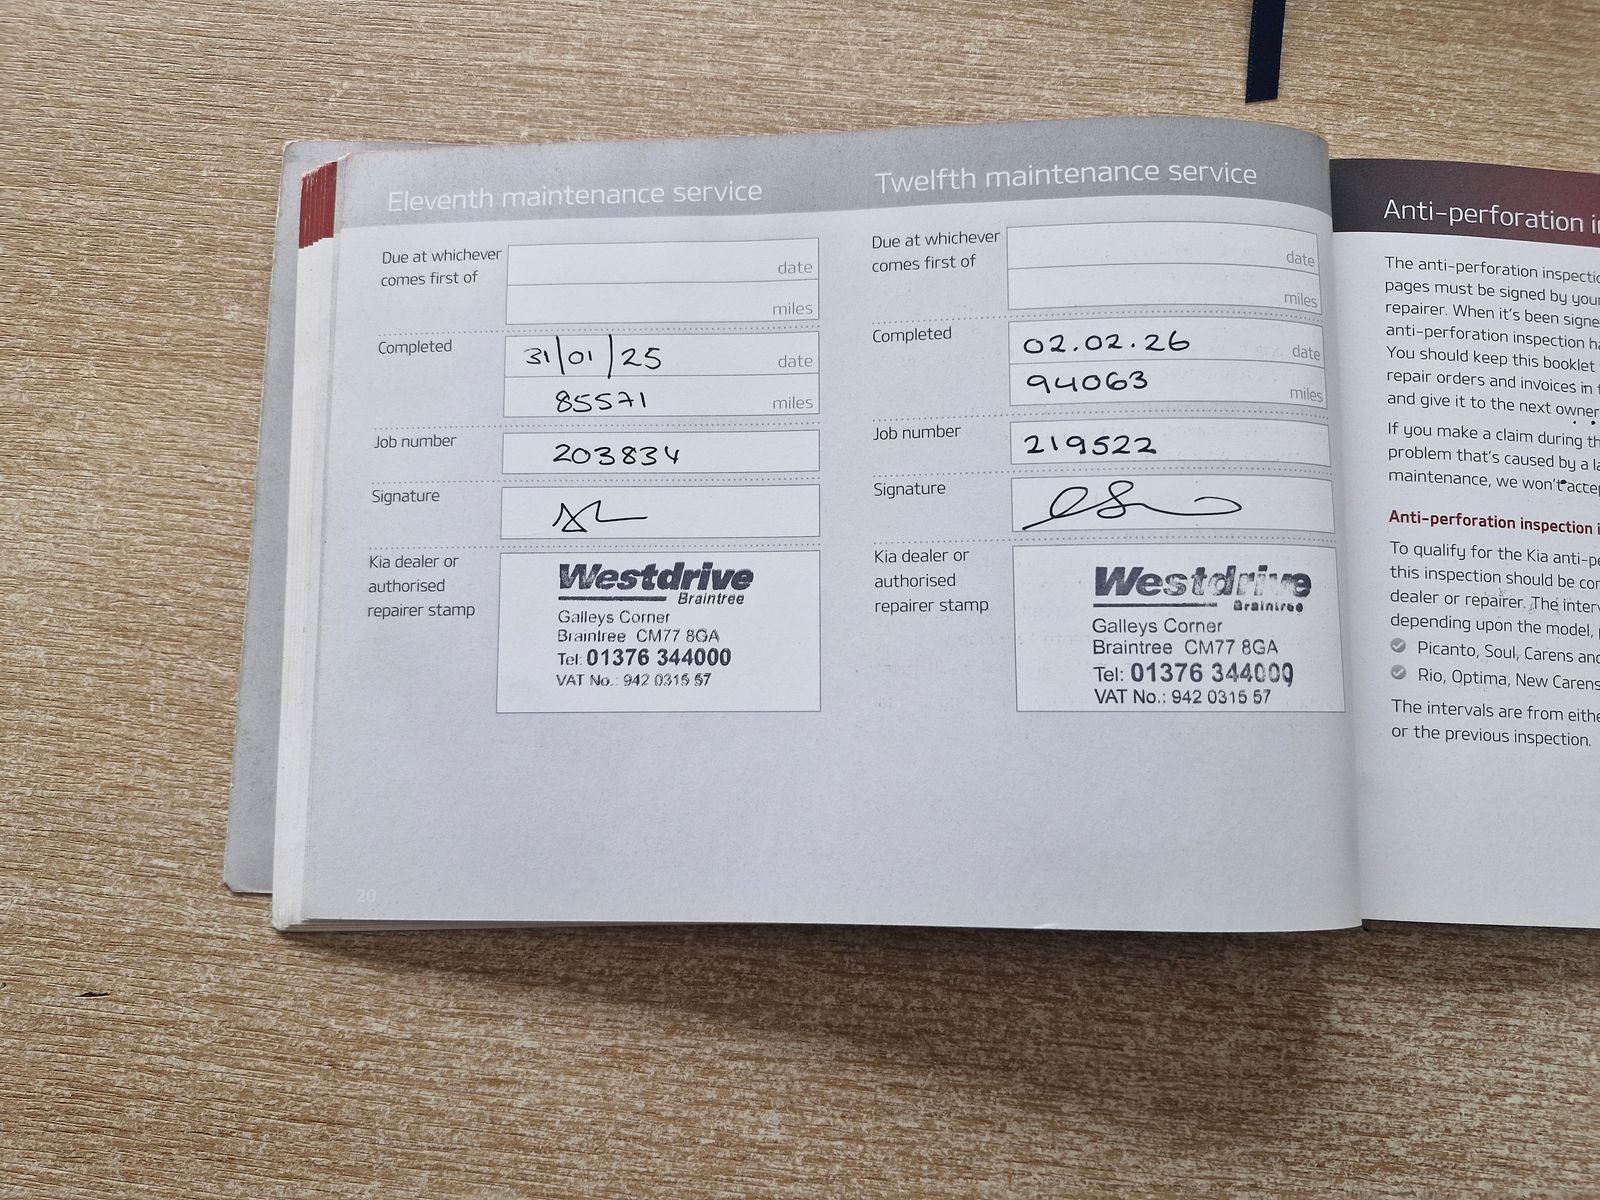 Eleventh maintenance service
Due at whichever
comes first of
date
miles
Completed
31/01/25
date
85571
miles
Job number
203834
Signature
Kia dealer or
authorised
repairer stamp
Westdrive
Braintree
Galleys Corner
Braintree CM77 8GA
Tel: 01376 344000
VAT No.: 942 0315 57
20
Twelfth maintenance service
Due at whichever
comes first of
date
miles
Completed
02.02.26
date
94063
miles
Job number
219522
Signature
Kia dealer or
authorised
repairer stamp
Westdrive
Braintree
Galleys Corner
Braintree CM77 8GA
Tel: 01376 344000
VAT No.: 942 0315 57
Anti-perforation
The anti-perforation
pages must be signed by
repairer. When it's been
anti-perforation inspection
You should keep this booklet
repair orders and invoices in
and give it to the next owner
If you make a claim during
problem that's caused by a
maintenance, we won't
Anti-perforation inspection
To qualify for the Kia
this inspection should be
dealer or repairer. The
depending upon the model,
Picanto, Soul, Carens
Rio, Optima, New Carens
The intervals are from
or the previous inspection.